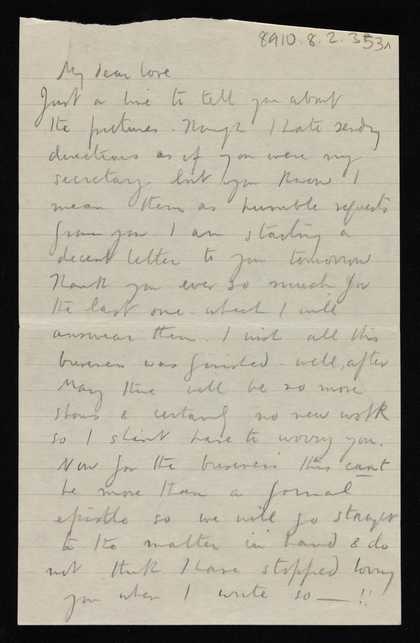 8910.8.2.353
My dear love
Just a line to tell you about
the pictures. Though I hate sending
directions as if you were my
secretary but you know I
mean them as humble requests
from you I am starting a
decent letter to you tomorrow
Thank you ever so much for
the last one which I will
answear then. I wish all this
buseness was finished - well, after
May there will be no more
shows & certainly no new work
so I shant have to worry you.
Now for the buseness this cant
be more than a formal
epistle so we will go straight
to the matter in hand & do
not think I have stopped loving
you when I write so — !!